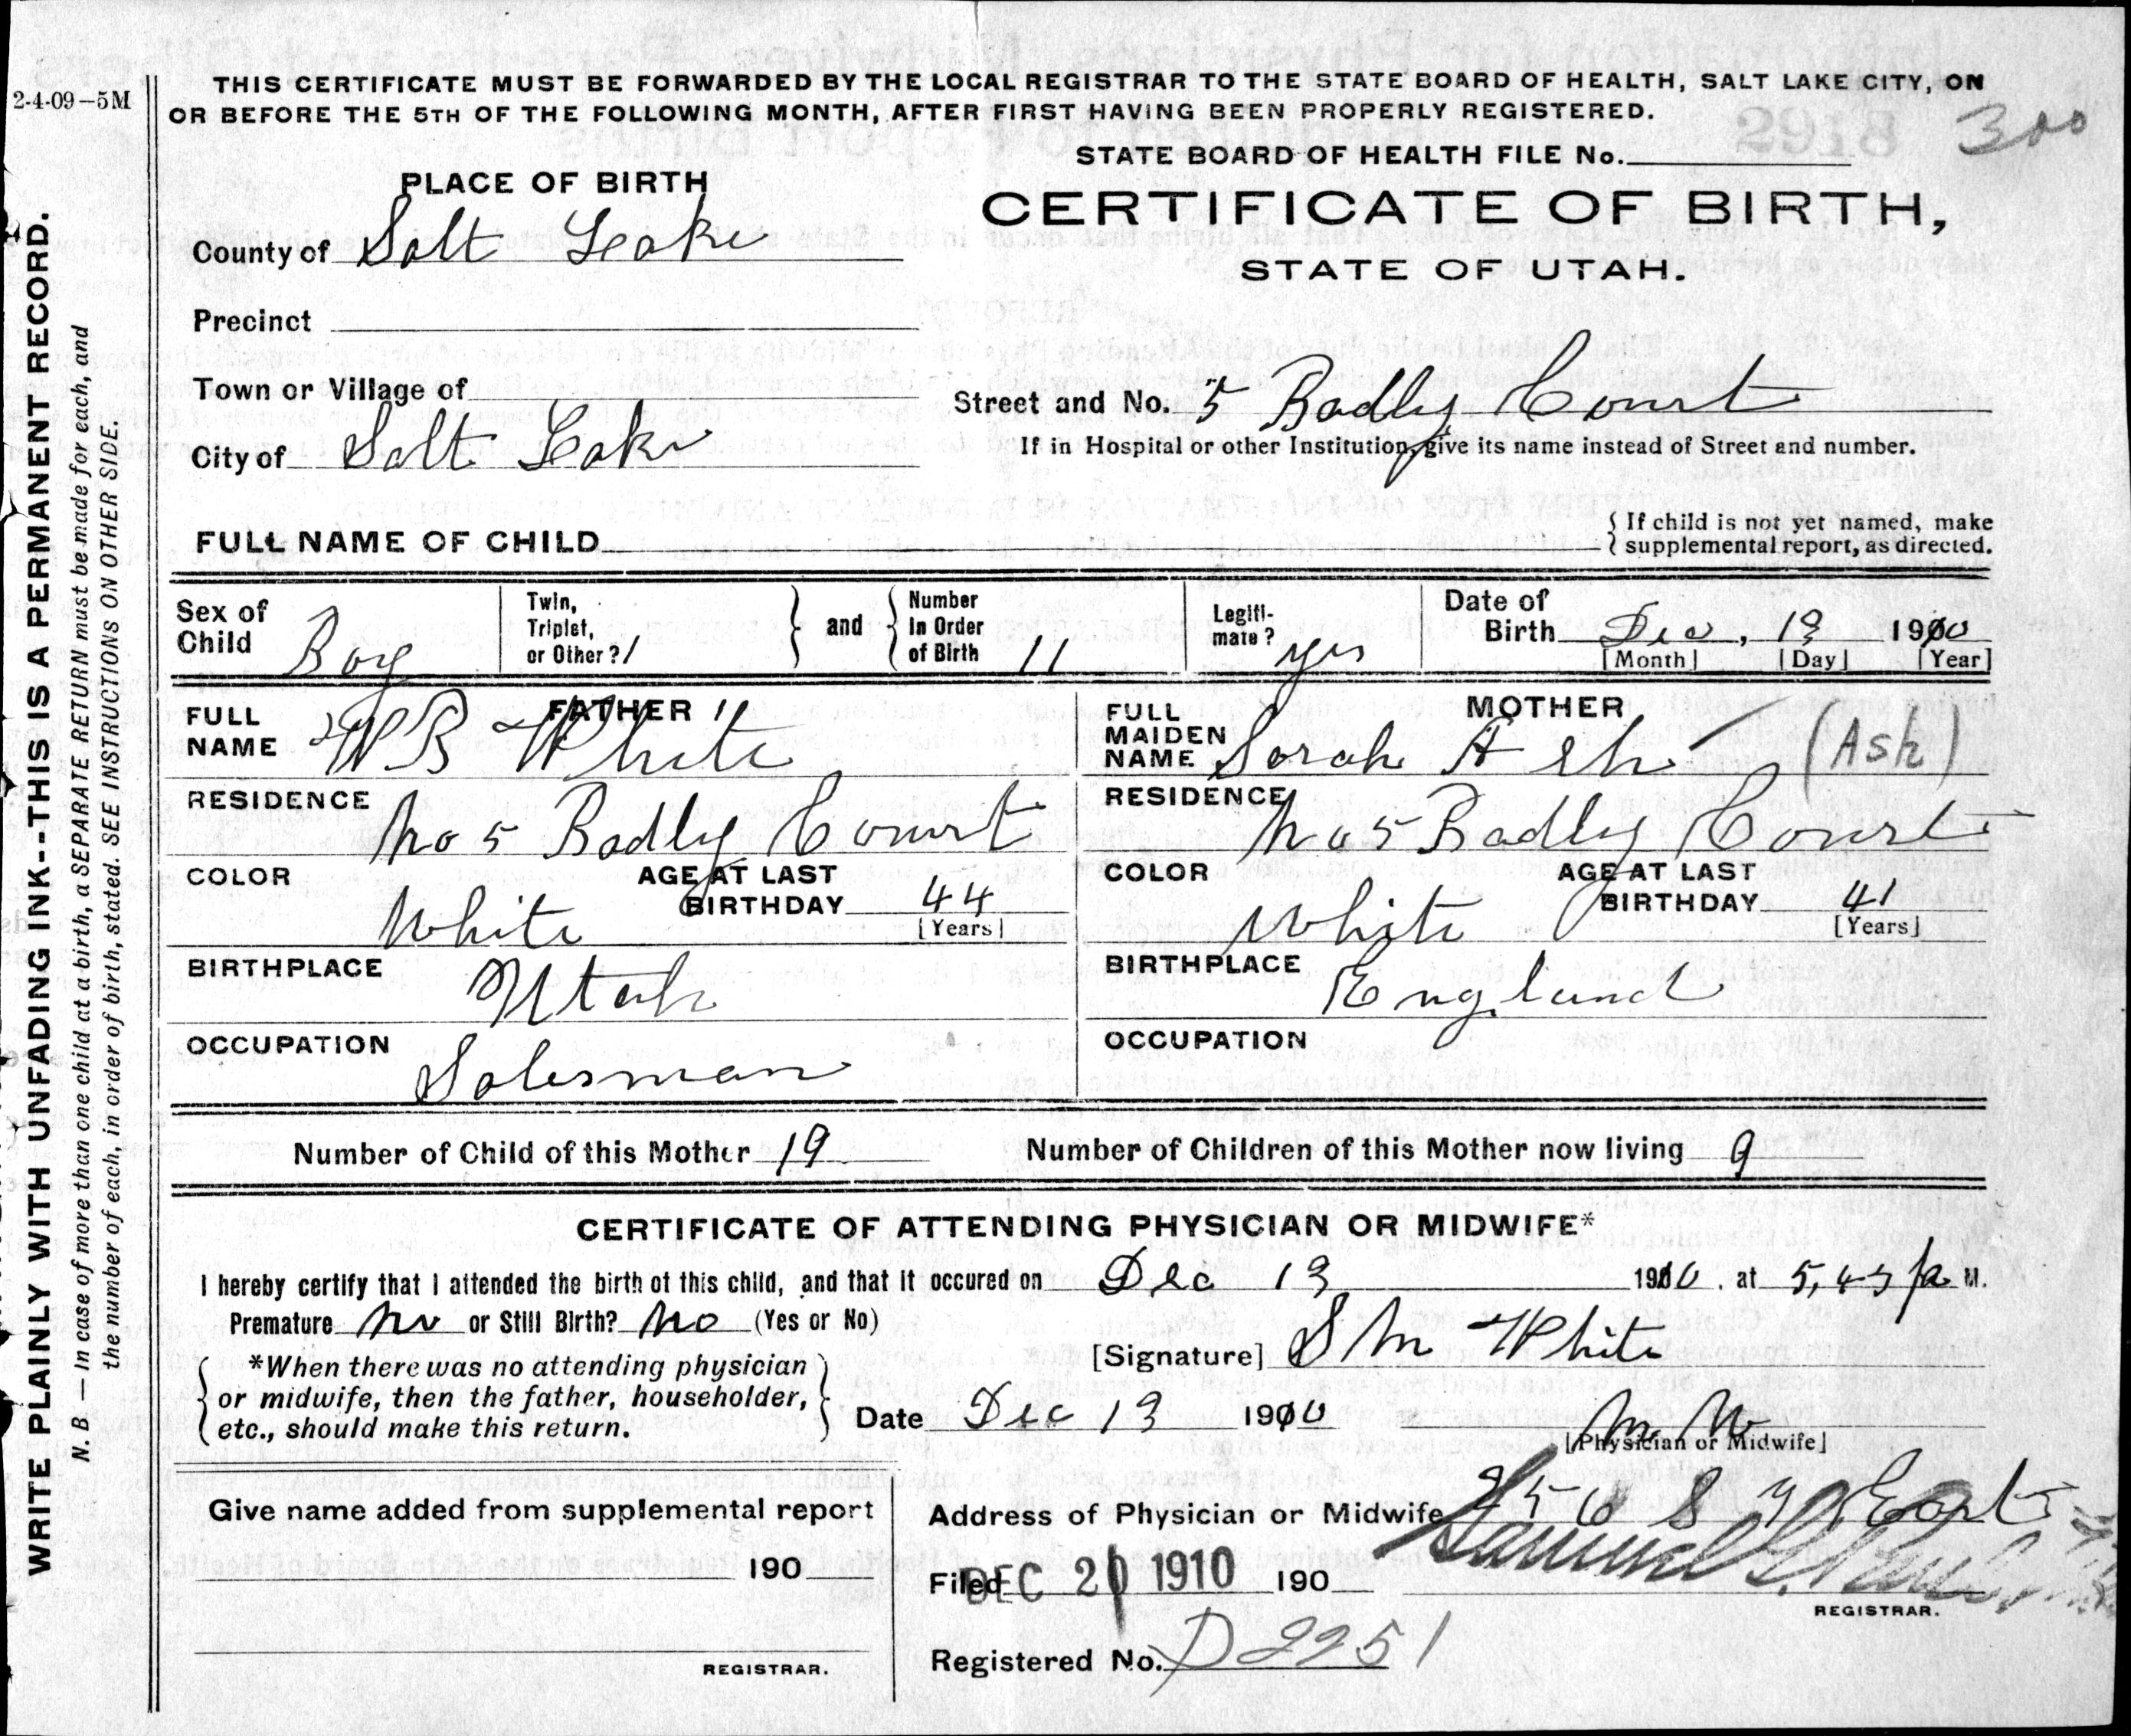 2-4-09-5M
THIS CERTIFICATE MUST BE FORWARDED BY THE LOCAL REGISTRAR TO THE STATE BOARD OF HEALTH, SALT LAKE CITY, ON
OR BEFORE THE 5TH OF THE FOLLOWING MONTH, AFTER FIRST HAVING BEEN PROPERLY REGISTERED.
300
STATE BOARD OF HEALTH FILE No.
WRITE PLAINLY WITH UNFADING INK--THIS IS A PERMANENT RECORD.
N. B. — In case of more than one child at a birth, a SEPARATE RETURN must be made for each, and
the number of each, in order of birth, stated. SEE INSTRUCTIONS ON OTHER SIDE.
PLACE OF BIRTH
CERTIFICATE OF BIRTH,
STATE OF UTAH.
County of Salt Lake
Precinct
Town or Village of
Street and No. 5 Badly Court
If in Hospital or other Institution, give its name instead of Street and number.
City of Salt Lake
FULL NAME OF CHILD
{ If child is not yet named, make
supplemental report, as directed.
Sex of Child Boy
Twin, Triplet, or Other? / } and { Number In Order of Birth 11
Legiti-mate? yes
Date of Birth Dec, 13 1910
[Month] [Day] [Year]
FATHER
FULL NAME W B White
MOTHER
FULL MAIDEN NAME Sarah Ash (Ash)
RESIDENCE No 5 Badly Court
RESIDENCE No 5 Badly Court
COLOR White AGE AT LAST BIRTHDAY 44 [Years]
COLOR White AGE AT LAST BIRTHDAY 41 [Years]
BIRTHPLACE Utah
BIRTHPLACE England
OCCUPATION Salesman
OCCUPATION
Number of Child of this Mother 19 Number of Children of this Mother now living 9
CERTIFICATE OF ATTENDING PHYSICIAN OR MIDWIFE*
I hereby certify that I attended the birth of this child, and that it occured on Dec 13 1910, at 5,45 M.
Premature No or Still Birth? No (Yes or No)
[Signature] S M White
{ *When there was no attending physician
or midwife, then the father, householder,
etc., should make this return. }
Date Dec 13 1910
[Physician or Midwife]
Give name added from supplemental report
190
REGISTRAR.
Address of Physician or Midwife East
Filed DEC 20 1910 190
Samuel G.
REGISTRAR.
Registered No. D2251